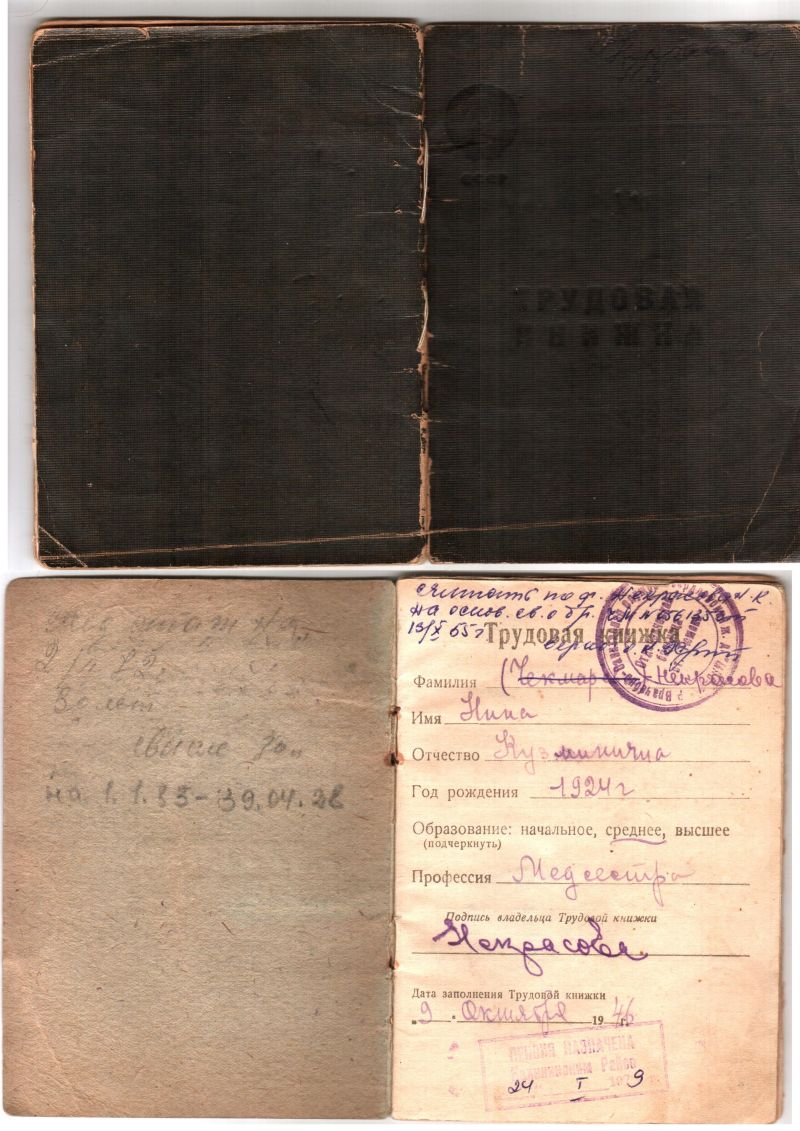 СССР
ТРУДОВАЯ
КНИЖКА
30 лет
свыше
на 1.1.83-39.04.28
считать по ф. Некрасова Н. К.
на основ. св. о бр.
13/X 65 г
Трудовая книжка
Фамилия (Чекмаре) - Некрасова
Имя Нина
Отчество Кузминична
Год рождения 1924 г
Образование: начальное, среднее, высшее
(подчеркнуть)
Профессия Медсестра
Подпись владельца Трудовой книжки
Некрасова
Дата заполнения Трудовой книжки
„9“ Октября 1946 г.
ПЕНСИЯ НАЗНАЧЕНА
Калининским Райсо
24 I 1979 г.